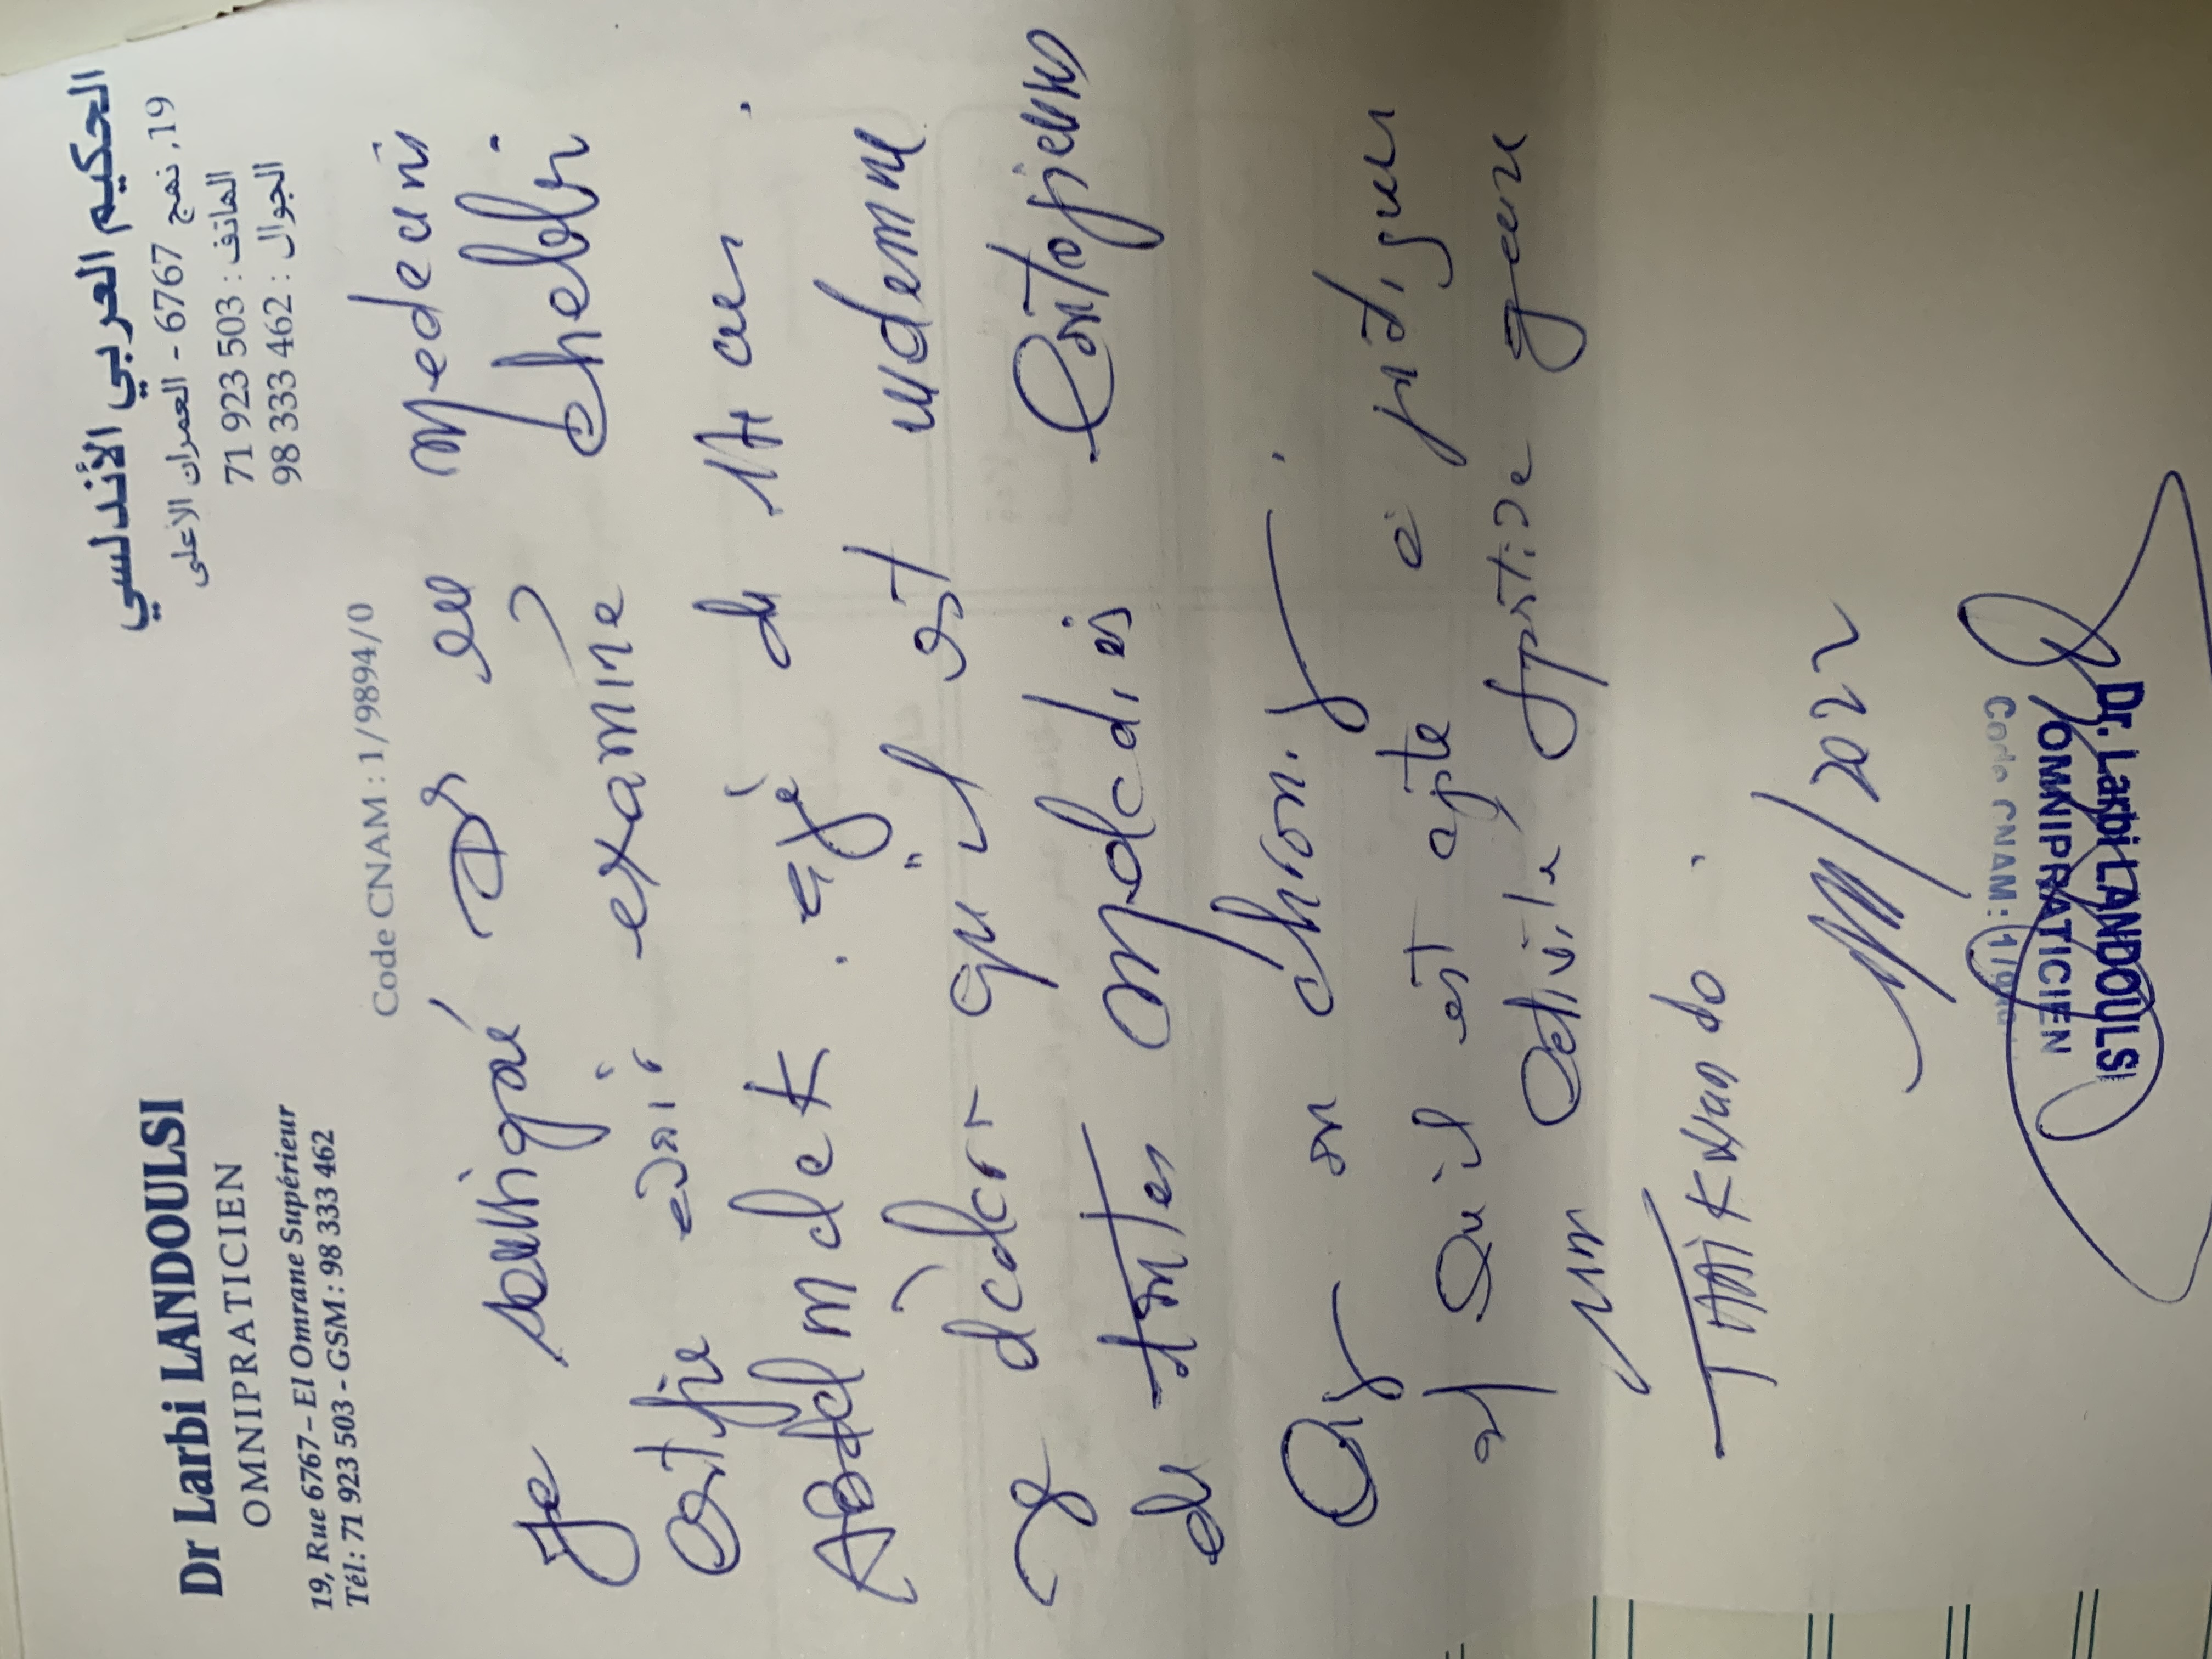 Dr Larbi LANDOULSI
OMNIPRATICIEN
19, Rue 6767 - El Omrane Supérieur
Tél : 71 923 503 - GSM : 98 333 462
الحكيم العربي الأندلسي
19، نهج 6767 - العمران الأعلى
الهاتف : 71 923 503
الجوال : 98 333 462
Code CNAM : 1/9894/0
Je soussigné Dr en Medecine
Certifie avoir examiné Chebbi
Abdelmalek. âgé de 14 ans.
Je déclare qu'il est indemne
de toutes maladies Contagieuses
Ou chronique.
et Qu'il est apte à pratiquer
une activité sportive genre
Taikwando.
/2022
Code CNAM: 1/
OMNIPRATICIEN
Dr. Larbi LANDOULSI